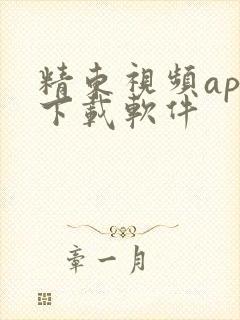 精東視頻ap
下載軟件
章一月